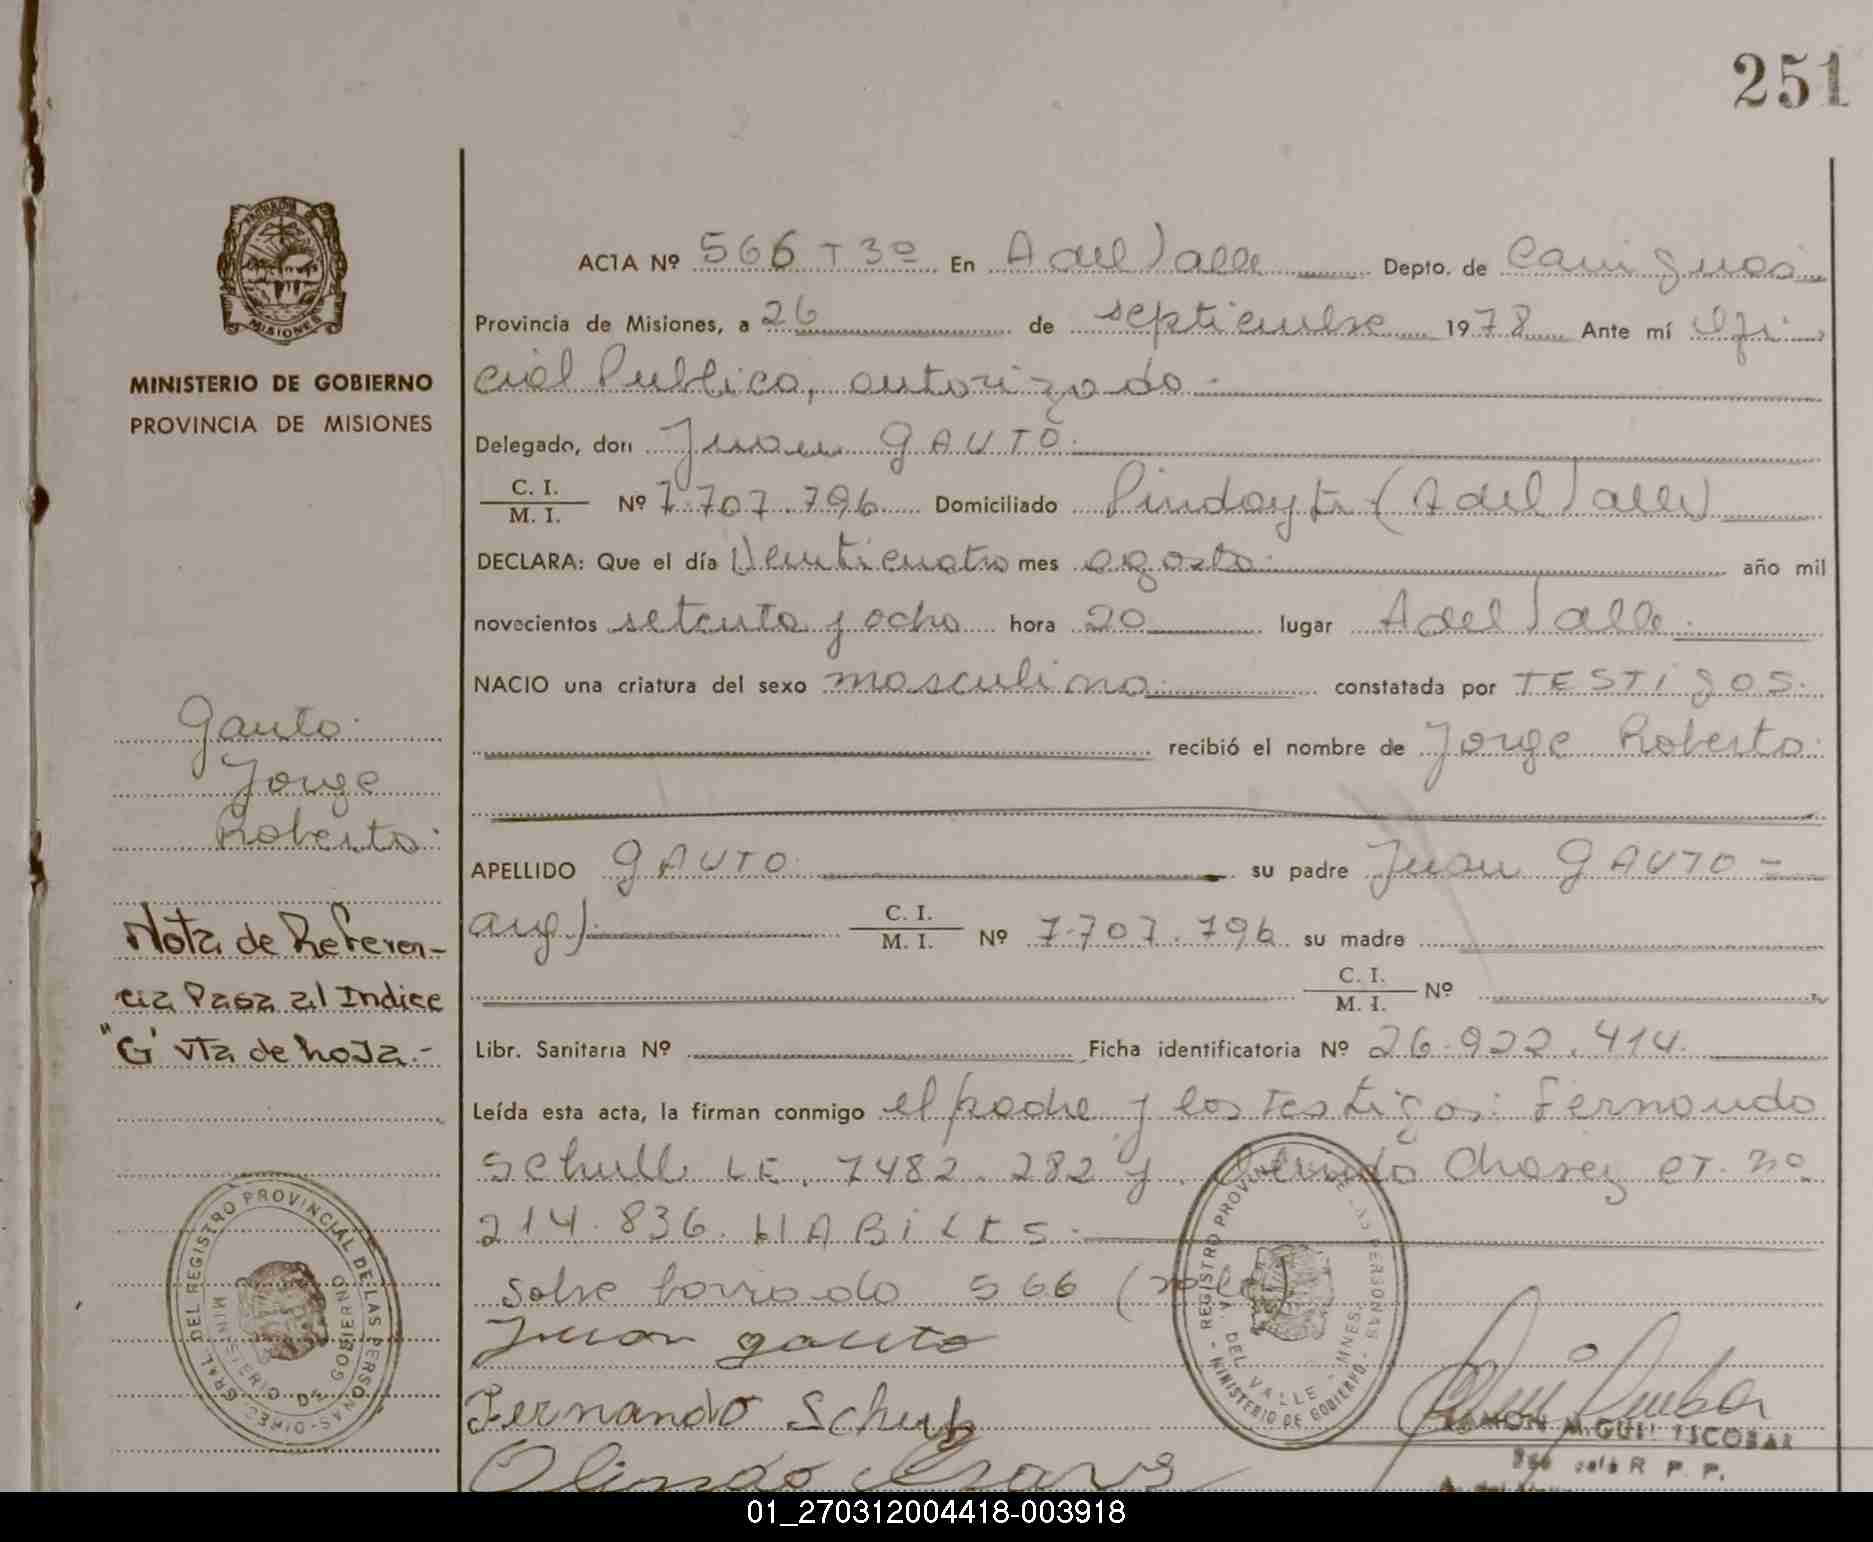 251
MINISTERIO DE GOBIERNO
PROVINCIA DE MISIONES
ACTA Nº 566 T 3º En A del Valle Depto. de Cainguas
Provincia de Misiones, a 26 de septiembre 1978 Ante mí Ofi
cial Publico, autorizado.
Delegado, don Juan GAUTO.
C. I.
M. I. Nº 7.707.796 Domiciliado Pindayti (A del Valle)
DECLARA: Que el día Veinticuatro mes agosto. año mil
novecientos setenta y ocho hora 20 lugar A del Valle.
NACIO una criatura del sexo masculino. constatada por TESTIgos.
recibió el nombre de Jorge Roberto.
APELLIDO GAUTO. su padre Juan GAUTO =
arg). C. I.
M. I. Nº 7.707.796 su madre
C. I.
M. I. Nº
Libr. Sanitaria Nº Ficha identificatoria Nº 26.922.414.
Leída esta acta, la firman conmigo el padre y los testigos: Fernando
LE. 7482.282 y. Chavez CT. nº
214.836. HABILES.
Sobre borrado 566 (vale)
Juan gauto
Fernando
Gauto.
Jorge
Roberto.
Nota de Referen-
cia Pasa al Indice
"G" vta de hoja.-
DIREC. GRAL. DEL REGISTRO PROVINCIAL DE LAS PERSONAS
MINISTERIO DE GOBIERNO
REGISTRO PROVINCIAL DE LAS PERSONAS
DEL VALLE - MNES.
MINISTERIO DE GOBIERNO
RAMON MIGUEL ESCOBAR
R. P. P.
01_270312004418-003918